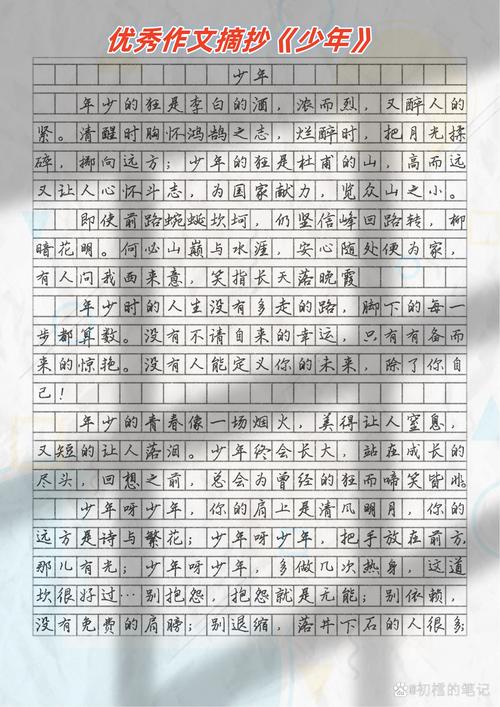 优秀作文摘抄《少年》
少年
年少的狂是李白的酒，浓而烈，又醉人的
紧。清醒时胸怀鸿鹄之志，烂醉时，把月光揉
碎，掷向远方；少年的狂是杜甫的山，高而远
又让人心怀斗志，为国家献力，览众山之小。
即使前路蜿蜒坎坷，仍坚信峰回路转，柳
暗花明。何必山巅与水涯，安心随处便为家，
有人问我西来意，笑指长天落晚霞
年少时的人生没有多走的路，脚下的每一
步都算数。没有不请自来的幸运，只有有备而
来的惊艳。没有人能定义你的未来，除了你自
己！
年少的青春像一场烟火，美得让人窒息，
又短的让人落泪。少年终会长大，站在成长的
尽头，回想之前，总会为曾经的狂而啼笑皆非
少年呀少年，你的肩上是清风明月，你的
远方是诗与繁花；少年呀少年，把手放在前方，
那儿有光；少年呀少年，多做几次热身，这道
坎很好过…别抱怨，抱怨就是无能；别依赖，
没有免费的肩膀；别退缩，落井下石的人很多；
初樰的笔记